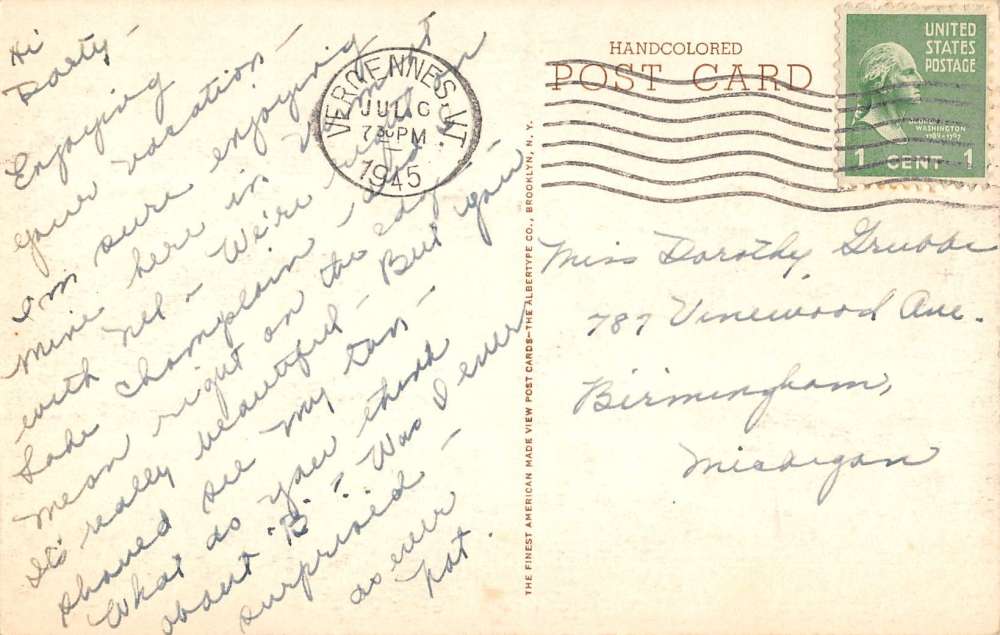 Hi
Dorty -
Enjoying
your vacation -
I'm sure enjoying
mine here in Vermont
with Nel - We're on
Lake Champlain - and I
mean right on the edge
It's really beautiful - But you
should see my tan -
What do you think
about "B"? Was I ever
surprised -
as ever
Pat.
VERGENNES, VT.
JUL 6
7 30 PM
1945
HANDCOLORED
POST CARD
UNITED
STATES
POSTAGE
WASHINGTON
1789-1797
1 CENT 1
THE FINEST AMERICAN MADE VIEW POST CARDS—THE ALBERTYPE CO., BROOKLYN, N. Y.
Miss Dorothy Grubbs
787 Vinewood Ave.
Birmingham,
Michigan